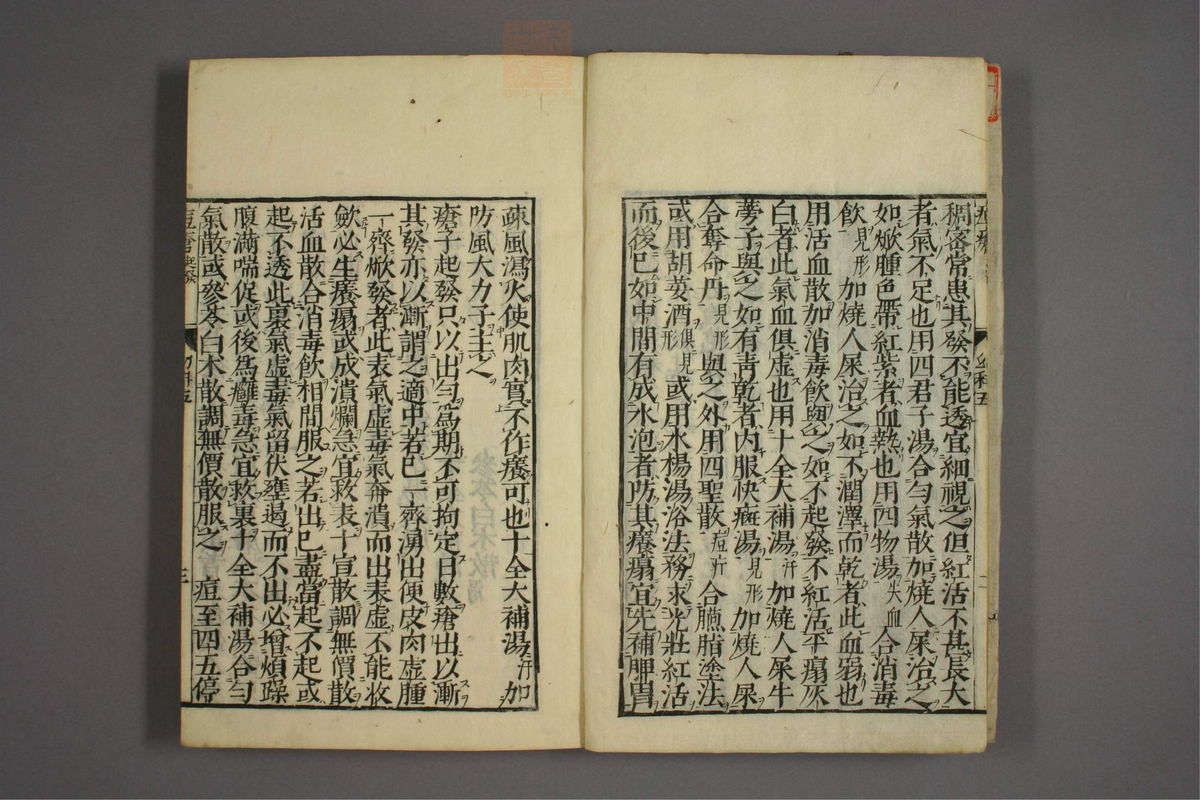 稠密常患其發不能透宜細視之但紅活不甚長大
者氣不足也用四君子湯合勻氣散加燒人屎治之
如焮腫色帶紅紫者血熱也用四物湯失血合消毒
飲見形加燒人屎治之如不潤澤而乾者此血弱也
用活血散加消毒飲與之如不起發不紅活平塌灰
白者此氣血俱虛也用十全大補湯汗加燒人屎牛
蒡子與之如有青乾者內服快癍湯見形加燒人屎
合奪命丹見形與之外用四聖散痘疔合臙脂塗法
或用胡荽酒俱見形或用水楊湯浴法務求光壯紅活
而後已如中間有成水泡者防其癢塌宜先補脾胃
二
疎風瀉火使肌肉實不作癢可也十全大補湯汗加
防風大力子主之
瘡子起發只以出勻為期不可拘定日數瘡出以漸
其發亦以漸謂之適中若已一齊湧出便皮肉虛腫
一齊焮發者此表氣虛毒氣奔潰而出表虛不能收
斂必生癢塌或成潰爛急宜救表十宣散調無價散
活血散合消毒飲相間服之若出已盡當起不起或
起不透此裏氣虛毒氣留伏壅遏而不出必增煩躁
腹滿喘促或後為癰毒急宜救裏十全大補湯合勻
氣散或參苓白朮散調無價散服之 痘至四五停
三